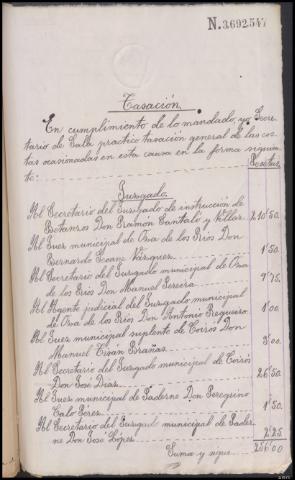 N.3692547
Tasación
En cumplimiento de lo mandado, yo Secre-
tario de Sala practico tasación general de las cos-
tas ocasionadas en esta causa en la forma siguien-
te:
Pesetas
Juzgado
Al Secretario del Juzgado de instrucción de
Betanzos Don Ramón Cantaló y Villar 210'50.
Al Juez municipal de Oza de los Ríos Don
Bernardo Seoane Vázquez 1'50.
Al Secretario del Juzgado municipal de Oza
de los Ríos Don Manuel Pereira 9'75.
Al Agente judicial del Juzgado municipal
de Oza de los Ríos Don Antonio Regueiro 1'00.
Al Juez municipal suplente de Corrós Don
Manuel Cisán Brañas 3'00.
Al Secretario del Juzgado municipal de Corrós
Don José Díaz 26'50.
Al Juez municipal de Paderne Don Peregrino
Calo Pérez 1'50.
Al Secretario del Juzgado municipal de Pader-
ne Don José López 2'25
Suma y sigue 256'00